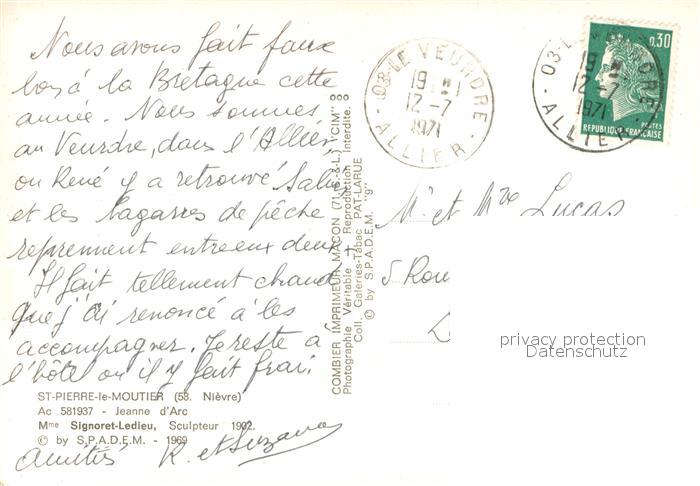 Nous avons fait faux
bon à la Bretagne cette
année. Nous sommes
au Veurdre, dans l'Allier,
où René y a retrouvé
et les bagarres de pêche
reprennent entre eux deux
Il fait tellement chaud
que j'ai renoncé à les
accompagner. Je reste à
l'hôtel où il y fait frais.
ST-PIERRE-le-MOUTIER (58. Nièvre)
Ac 581937 - Jeanne d'Arc
Mme Signoret-Ledieu, Sculpteur 1902.
© by S.P.A.D.E.M. - 1969
amitiés R. et Suzanne
COMBIER IMPRIMEUR MACON (71.S.-&-L.) "CIM"
Photographie Véritable Reproduction Interdite.
Coll. Galeries-Tabac PAT-LARUE
© by S.P.A.D.E.M. "9"
03-LE VEURDRE
19 H
12-7
1971
ALLIER
0,30
POSTES
REPUBLIQUE FRANÇAISE
03-LE VEURDRE
19 H
12-7
1971
ALLIER
Mr et Mme Lucas
5
privacy protection
Datenschutz